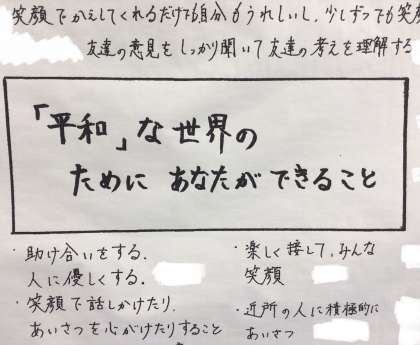 笑顔でかえしてくれるだけでも自分もうれしいし、少しずつでも笑
友達の意見をしっかり聞いて友達の考えを理解する
「平和」な世界の
ために あなたができること
・助け合いをする.
人に優しくする.
・笑顔で話しかけたり.
あいさつを心がけたりすること
・楽しく接して、みんな
笑顔
・近所の人に積極的に
あいさつ